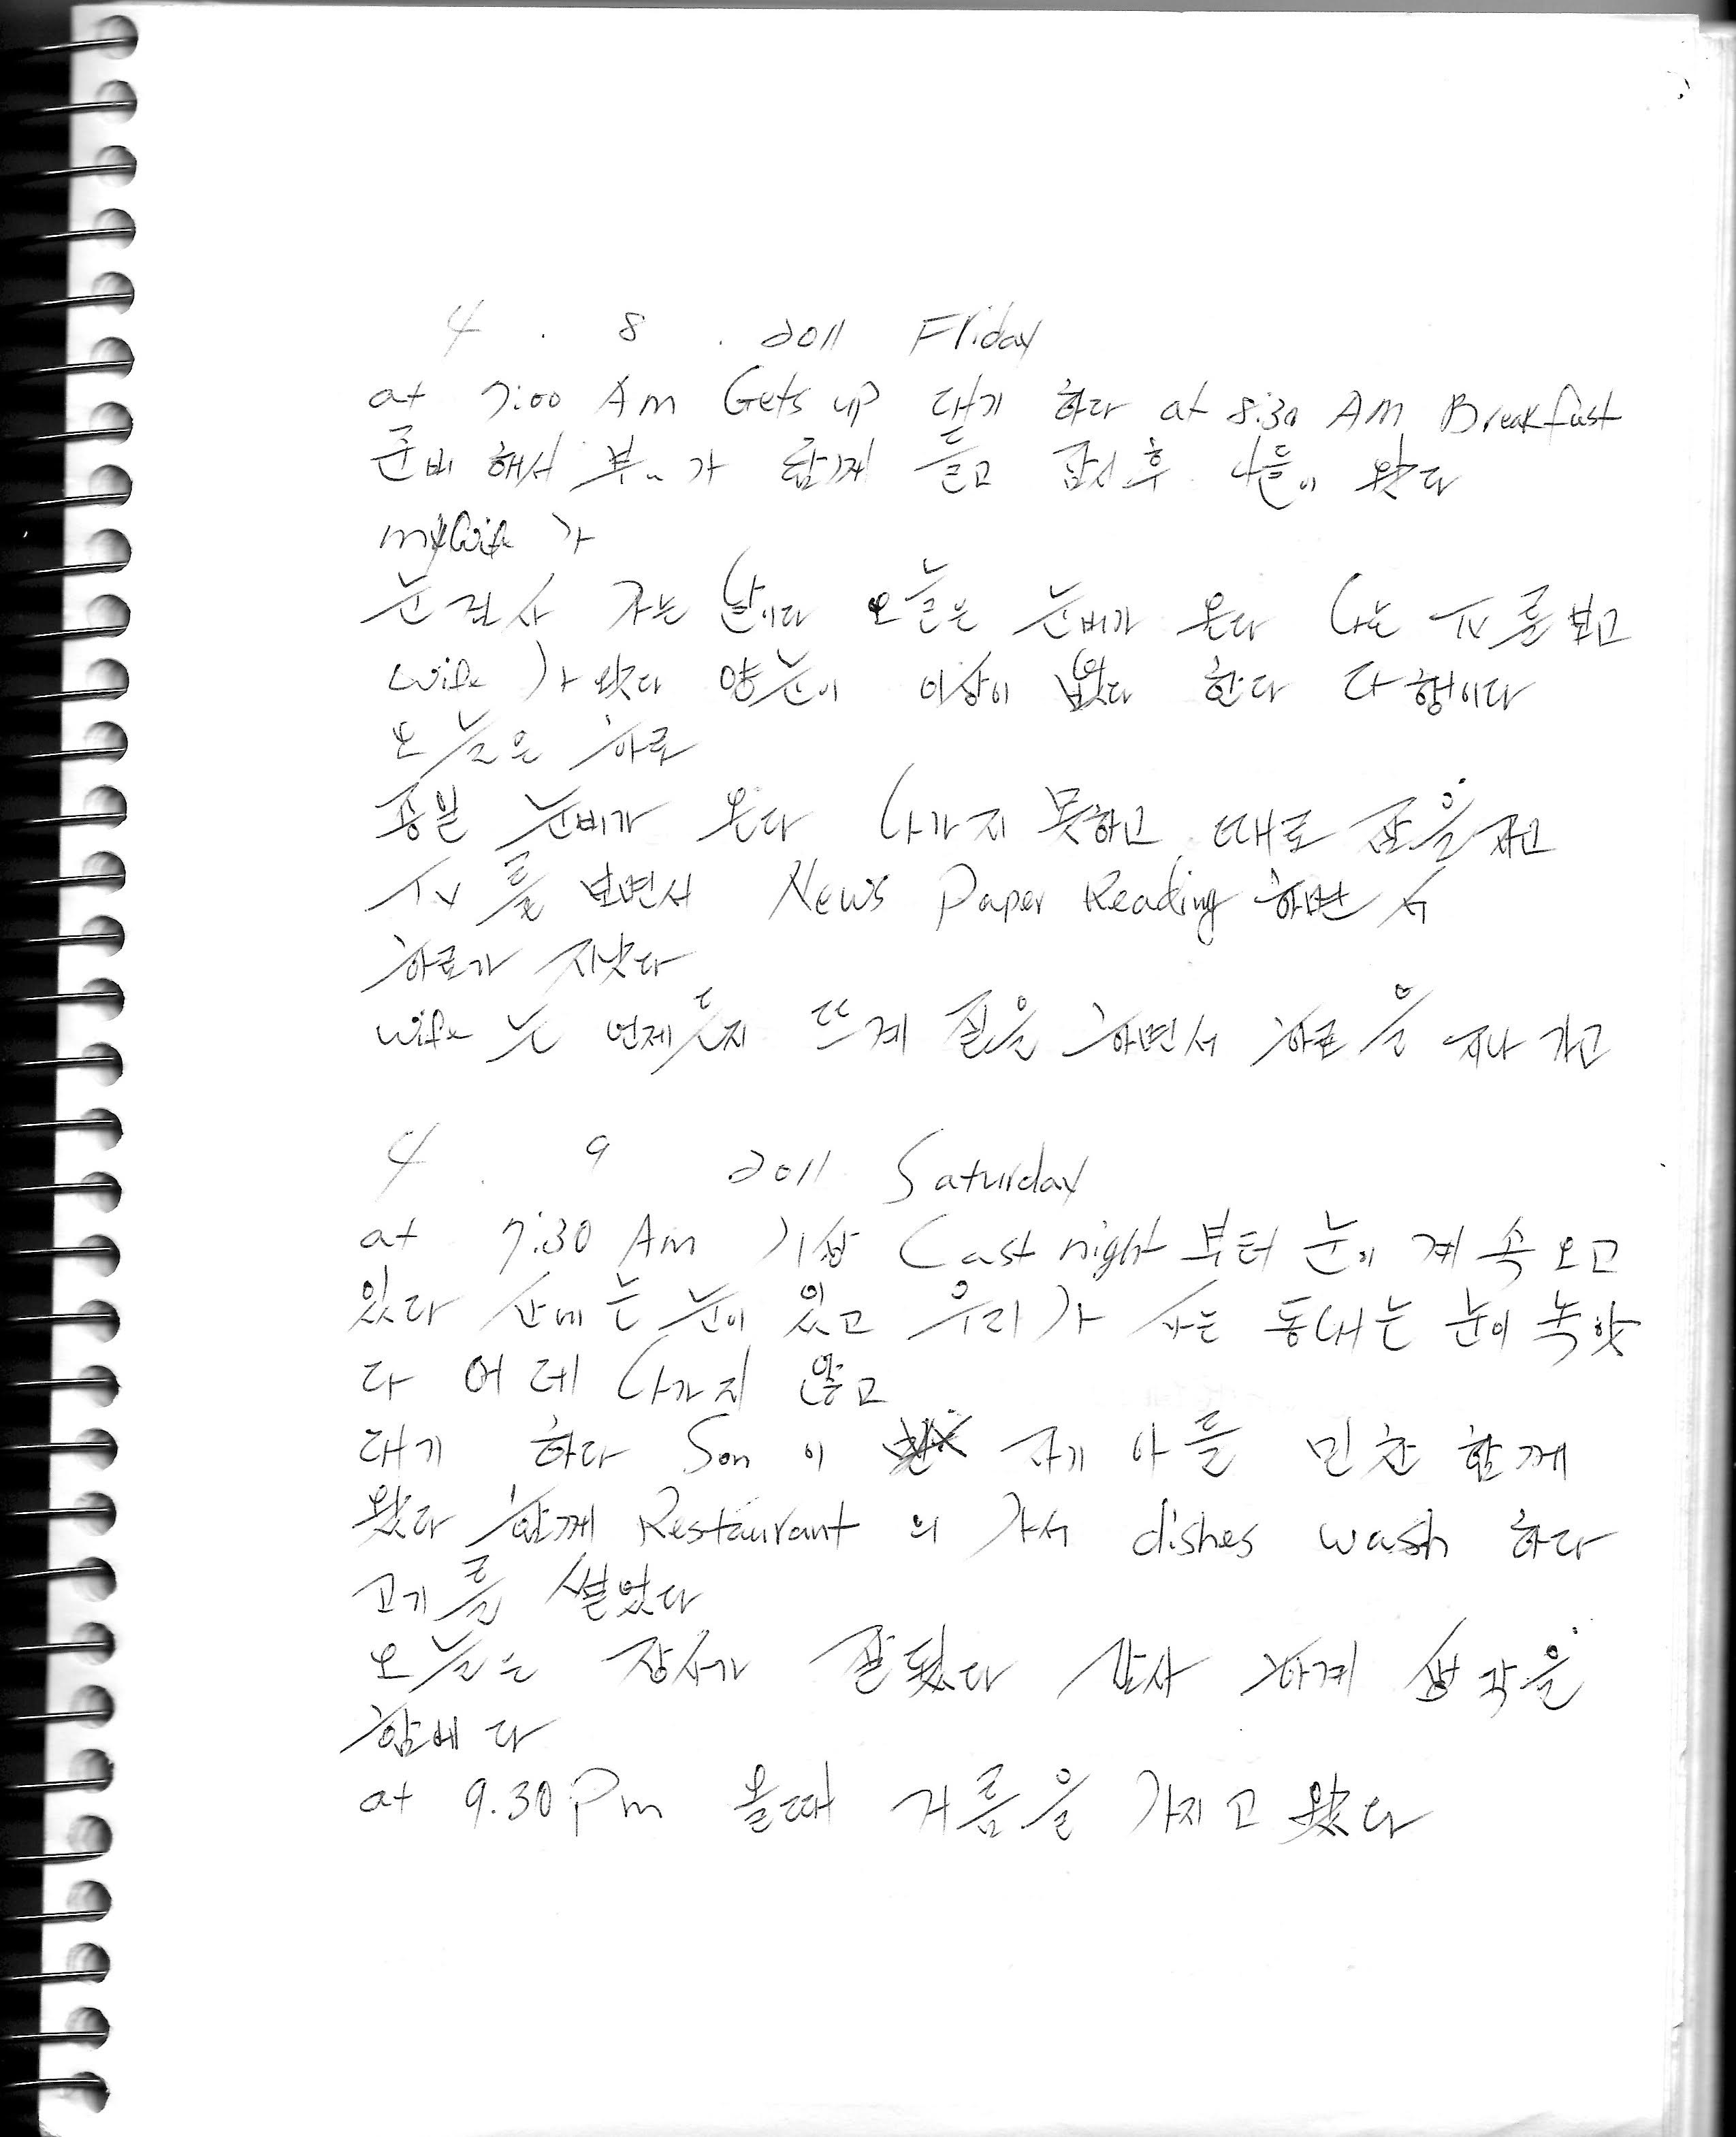 4 . 8 . 2011 Friday
at 7:00 Am Gets up 대기 하다 at 8:30 AM Breakfast
준비 해서 부〃가 함께 들고 잠시후 나들이 왔다
my wife 가
눈검사 가는 날이다 오늘은 눈비가 온다 나는 TV를 보고
wife 가 왔다 양눈이 이상이 없다 한다 다행이다
오늘은 하루
종일 눈비가 온다 나가지 못하고 때로 잠을 자고
TV를 보면서 News Paper Reading 하면서
하루가 지났다
wife 는 언제든지 뜨게 질을 하면서 하루을 지나 가고
4 . 9 2011 Saturday
at 7:30 Am 기상 Last night 부터 눈이 계속 오고
있다 산에는 눈이 있고 우리가 사는 동내는 눈이 녹핫
다 어데 나가지 않고
대기 하다 Son 이 자기 아들 민찬 함께
왔다 함께 Restaurant 의 가서 dishes wash 하다
고기를 썰었다
오늘은 장사가 잘됬다 감사 하게 생각을
함베다
at 9.30 Pm 올때 거름을 가지고 왔다